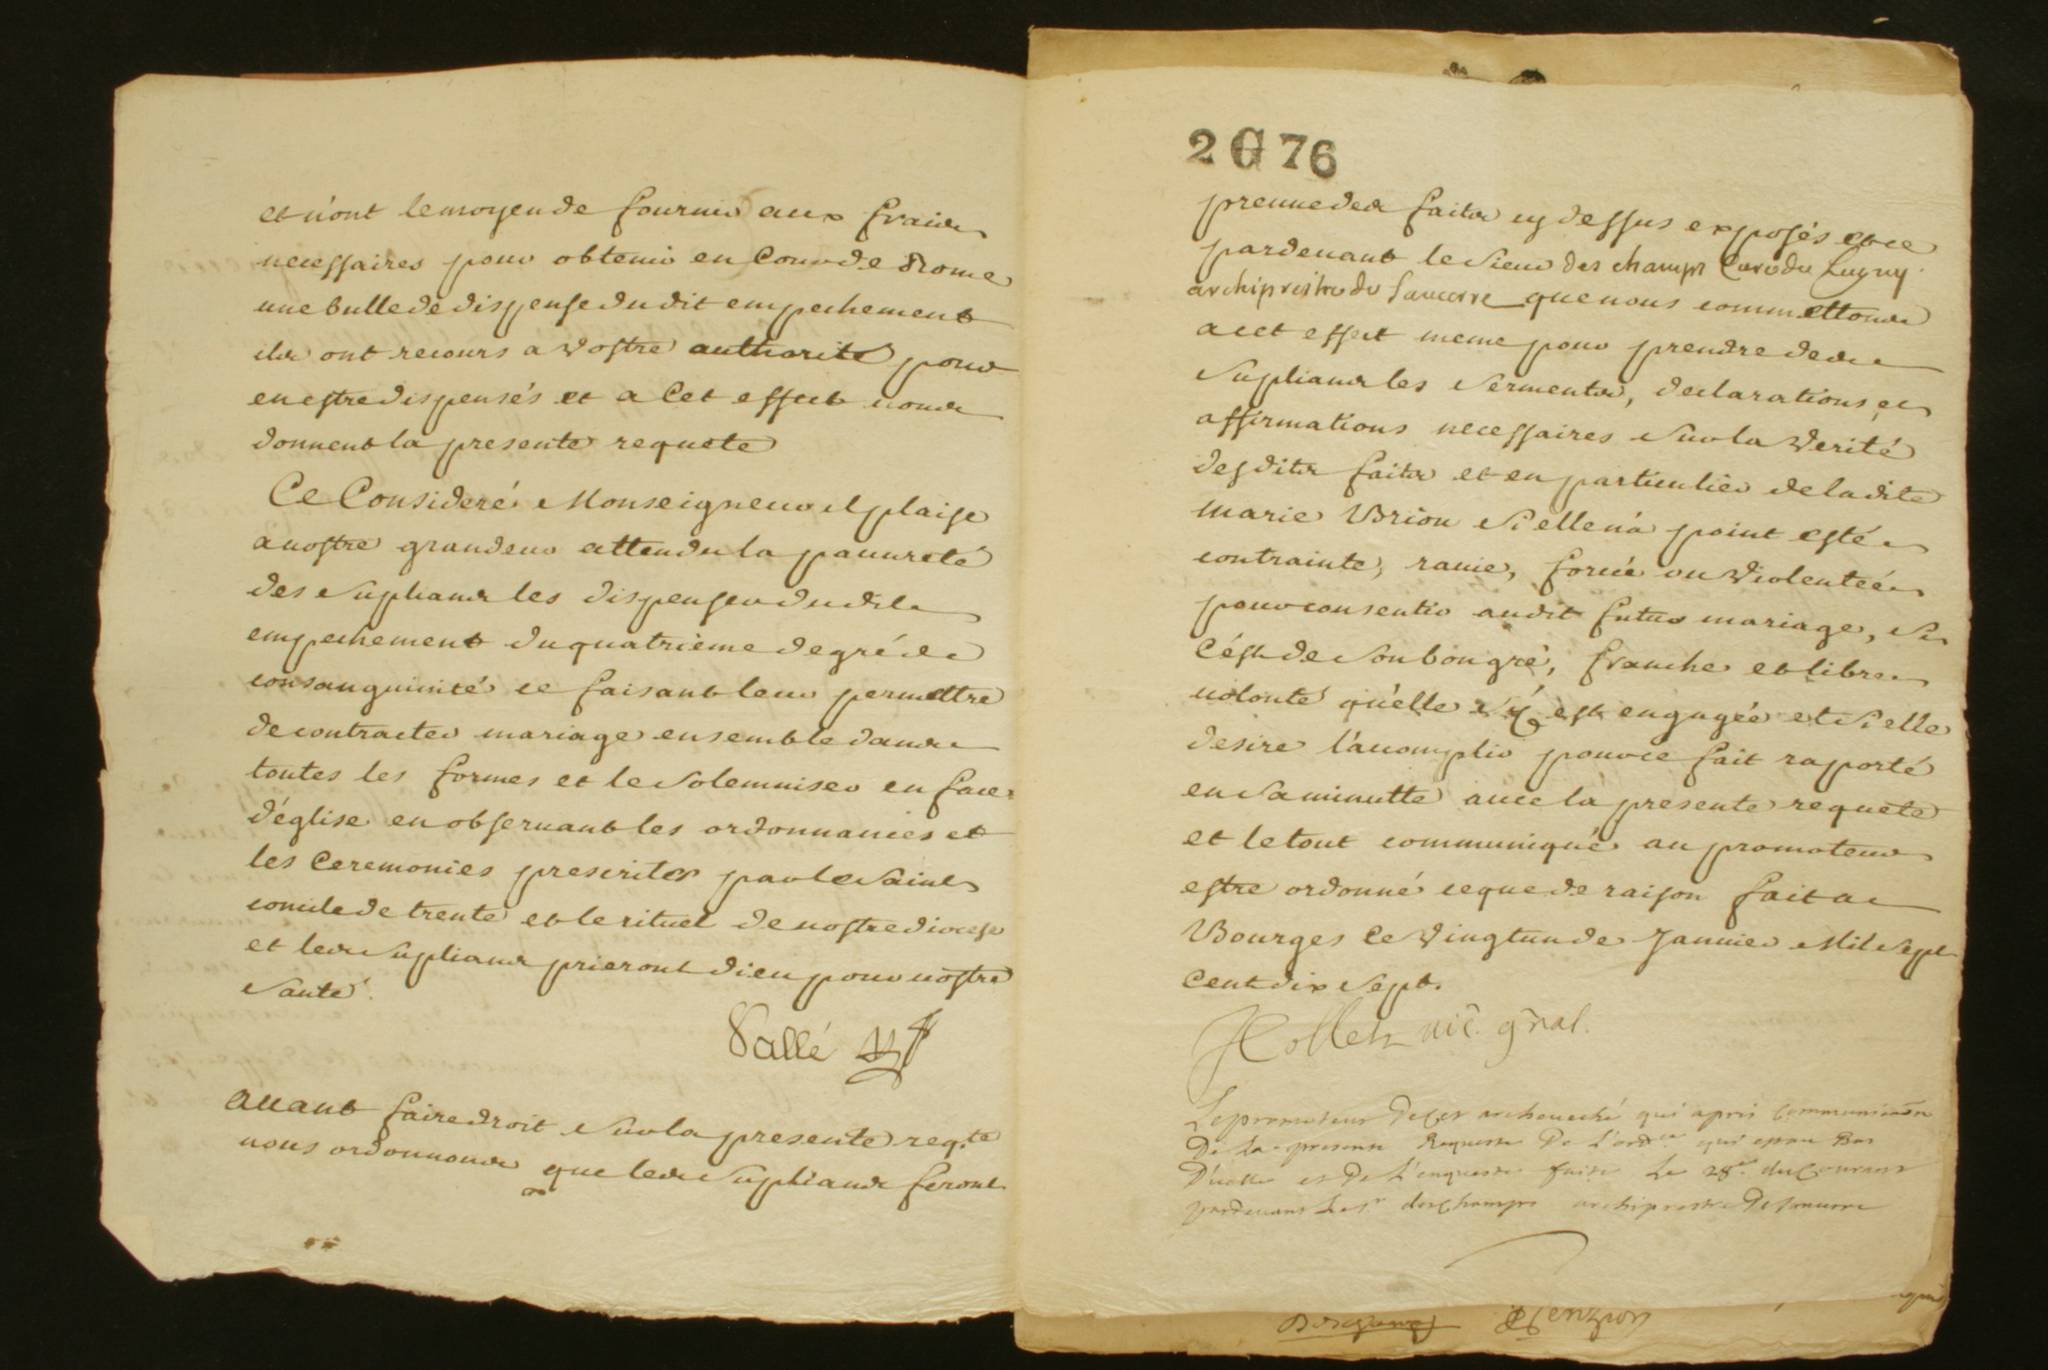 et n'ont le moyen de fournir aux fraix
necessaires pour obtenir en Cour de Rome
une bulle de dispense du dit empechement
ils ont recours a vostre authorité pour
en estre dispensés et a Cet effect nous
donnent la presente requete
Ce Consideré Monseigneur il plaise
a vostre grandeur attendu la pauvreté
des supliants les dispenser du dit
empechement du quatrieme degré de
consanguinité ce faisant leur permettre
de contracter mariage ensemble dans
toutes les formes et le solemniser en face
d'église en observant les ordonnances et
les Ceremonies prescrites par le saint
concile de trente et le rituel de vostre diocese
et les supliants prieront dieu pour vostre
santé.
Vallé
Avant faire droit sur la presente reqte
nous ordonnons que les supliants feront
2 G 76
preuve des faits cy dessus exposés et ce
pardevant le sieur des champs Curé du Lugny
archiprestre de Sancerre que nous commettons
a cet effect meme pour prendre des
supliants les serments, declarations et
affirmations necessaires sur la verité
desdits faits et en particulier de ladite
Marie Brion si elle n'a point esté
contrainte, ravie, forcée ou violentée
pour consentir audit futur mariage, si
C'est de son bon gré, franche et libre
volonté qu'elle s'y est engagée et si elle
desire l'acomplir pour ce fait raporté
en sa minutte avec la presente requete
et le tout communiqué au promoteur
estre ordonné ce que de raison fait a
Bourges Ce vingt un de Janvier Mil Sept
Cent dix sept.
Collet vic. gñal.
Le promoteur De Cet archeveché qui apris Communicaõn
De la presente Requeste De l'ordce qui est au Bas
D'icelle et De L'enqueste faite Le 28e du Courant
pardevant Le sr desChamps archiprestre De Sancerre